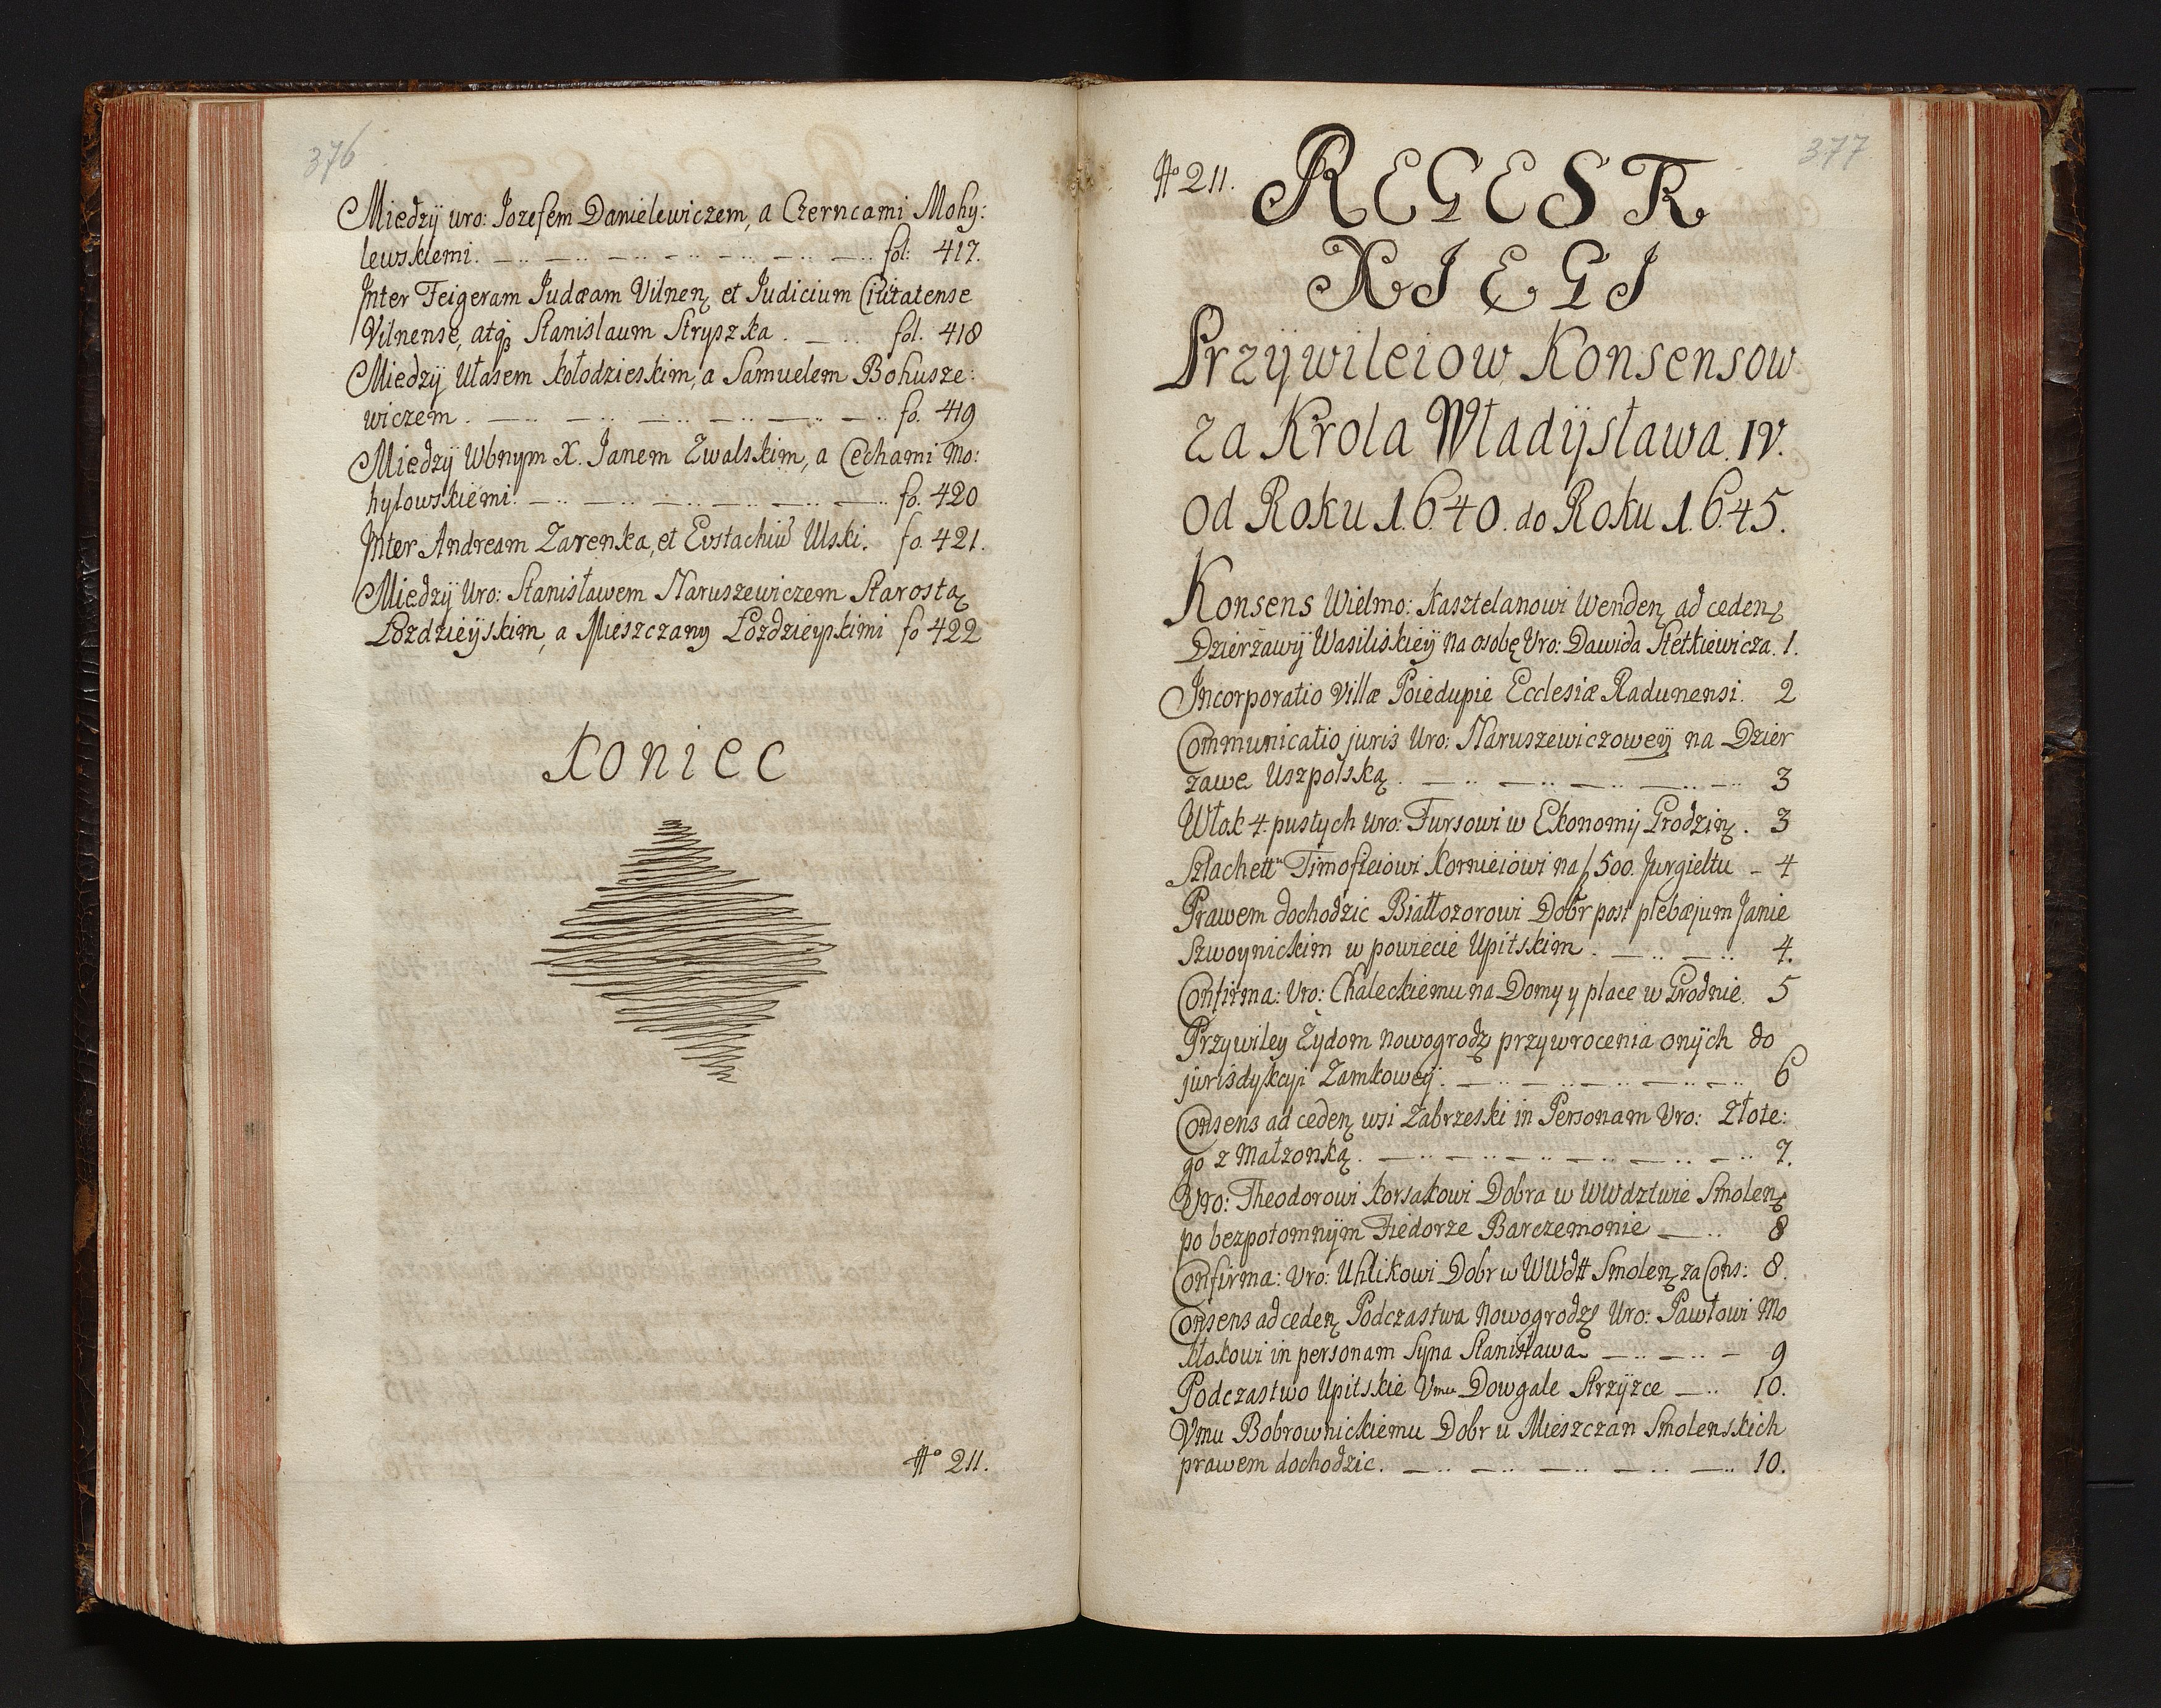 376
Miedzÿ uro: Jozefem Danielewiczem, a Czerncami Mohy:
lewskiemi. fol: 417.
Jnter Feigeram Judæam Vilnenȝ et Judicium Ciuitatense
Vilnense, atqȝ Stanislaum Stryszka. fol. 418
Miedzÿ Ułasem Kołodzieskim, a Samuelem Bohusze:
wiczem. fo. 419
Miedzÿ Wbnym X. Janem Zwalskim, a Cechami Mo:
hylowskiemi. fo. 420
Jnter Andream Zarenka, et Eustachiū Ulski. fo. 421.
Miedzÿ Uro: Stanisławem Naruszewiczem Starostą
Łozdzieÿskim, a Mieszczany Łozdzieyskimi fo 422
Koniec
No 211.
377
No 211. REGESTR
XIEGI
Przÿwileiow Konsensow
za Krola Władÿsława. IV.
od Roku 1640. do Roku 1645.
Konsens Wielmo: Kasztelanowi Wendenȝ ad cedenȝ
Dzierżawÿ Wasiliskieÿ na osobę Uro: Dawida Stetkiewicza. 1.
Jncorporatio Villæ Poiedupie Ecclesiæ Radunensi. 2
Communicatio juris Uro: Naruszewiczoweÿ na Dzier
zawe Uszpolską. 3
Włok 4. pustych Uro: Fursowi w Ekonomÿ Grodzinȝ. 3
Szlachett Timofieiowi Kornieiowi na 500. Jurgieltu 4
Prawem dochodzic Białłozorowi Dobr post plebæjum Janie
Szwoynickim w powiecie Upitskim. 4.
Confirma: Uro: Chaleckiemu na Domy y place w Grodnie. 5
Przywiley Żydom Nowogrodȝ przywrocenia onÿch do
jurisdykcyi Zamkoweÿ. 6
Consens ad cedenȝ wsi Zabrzeski in Personam Uro: Złote:
go z Małzonką. 7.
Uro: Theodorowi Korsakowi Dobra w WWdztwie Smolenȝ
po bezpotomnÿm Fiedorze Barczemonie 8
Confirma: Uro: Uhlikowi Dobr w WWdtt Smolenȝ za Cons: 8.
Consens ad cedenȝ Podczastwa Nowogrodȝ Uro: Pawłowi Mo
kłokowi in personam Syna Stanisława. 9
Podczastwo Upitskie Vmu Dowgale Strzÿżce 10.
Vmu Bobrownickiemu Dobr u Mieszczan Smolenskich
prawem dochodzic. 10.